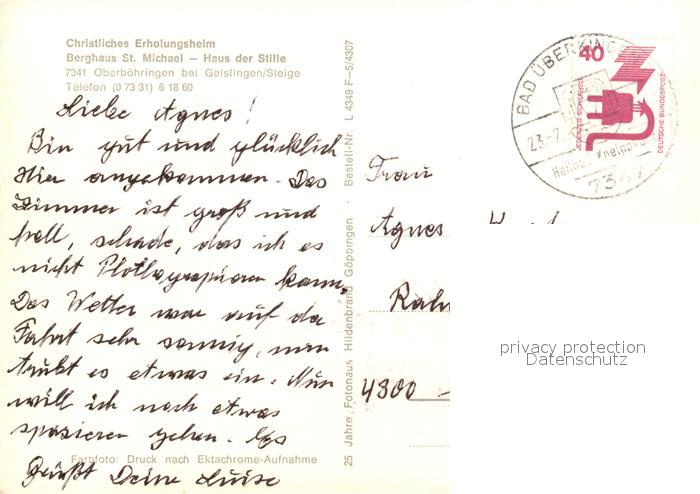 Christliches Erholungsheim
Berghaus St. Michael — Haus der Stille
7341 Oberböhringen bei Geislingen/Steige
Telefon (0 73 31) 6 18 60
Liebe Agnes!
Bin gut und glücklich
Hier angekommen. Das
Zimmer ist groß und
hell, schade, das ich es
nicht Phothographieren kann.
Das Wetter war auf da
Fahrt sehr sonnig, nun
trübt es etwas ein. Nun
will ich noch etwas
spazieren gehen. Es
Grüßt Deine Luise
Farbfoto: Druck nach Ektachrome-Aufnahme
25 Jahre Fotohaus Hildenbrand Göppingen · Bestell-Nr. L 4349 F–5/4307
Frau
Agnes
4300
BAD ÜBERKINGEN
23.-2.
7347
40
JEDERZEIT SICHERHEIT
DEUTSCHE BUNDESPOST
privacy protection
Datenschutz